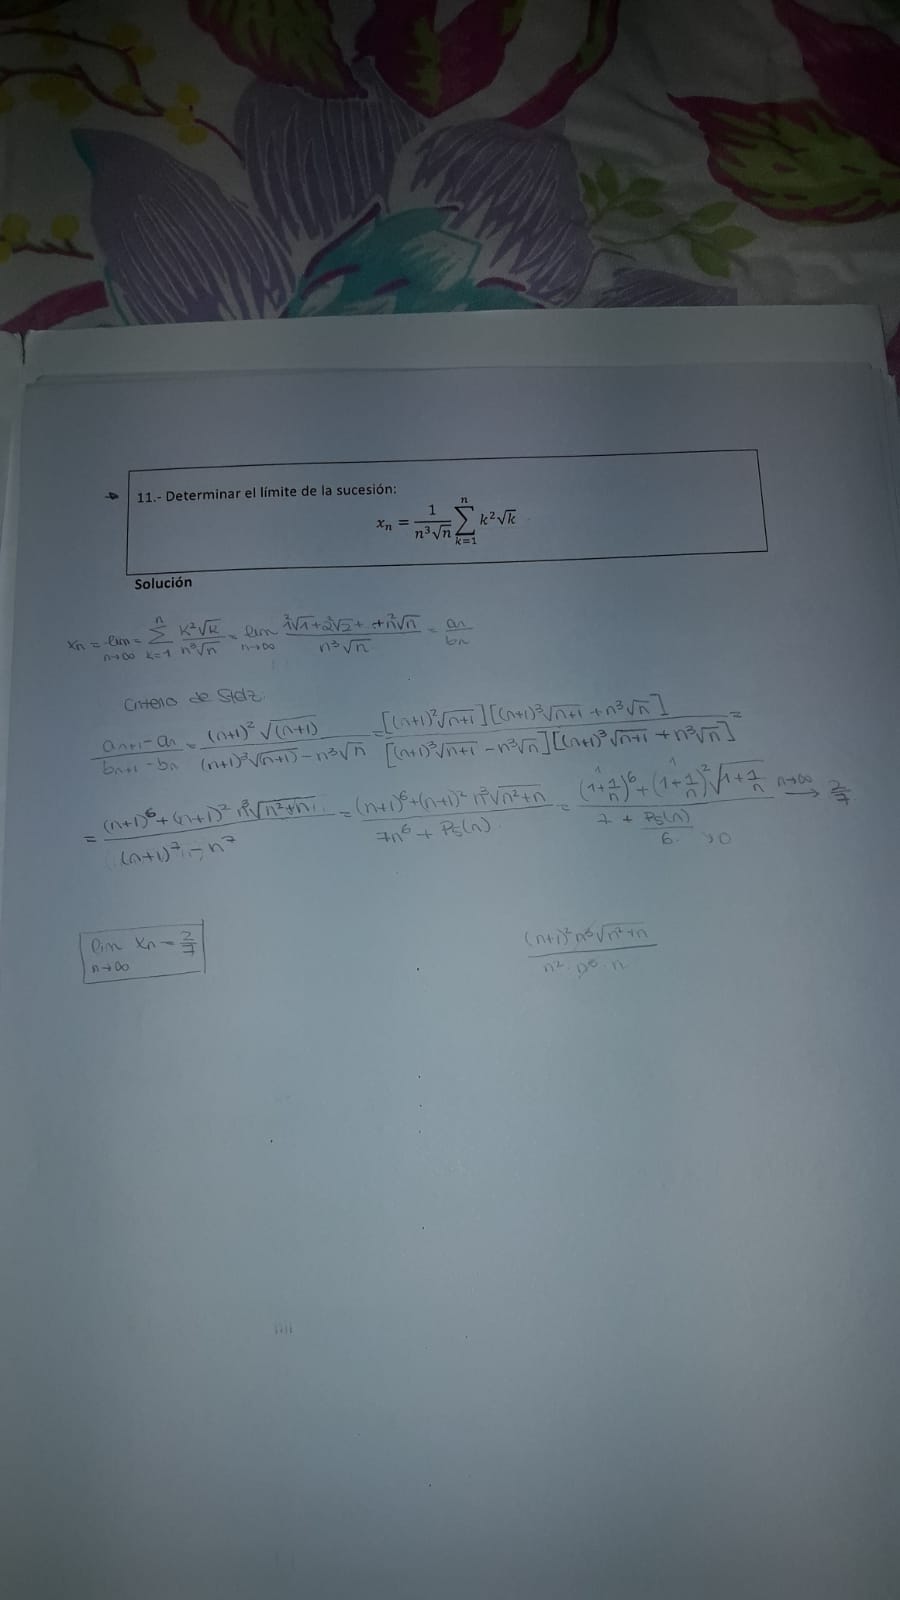 11.- Determinar el límite de la sucesión:
xₙ = 1/(n³√n) ∑_{k=1}^{n} k²√k
Solución
xₙ = lim_{n→∞} = ∑_{k=1}^{n} k²√k/(n³√n) = lim_{n→∞} (1²√1+2²√2+ +n²√n)/(n³√n) = aₙ/bₙ
Criterio de Stolz
(aₙ₊₁-aₙ)/(bₙ₊₁-bₙ) = (n+1)²√(n+1)/((n+1)³√(n+1) - n³√n) = [(n+1)²√(n+1)][(n+1)³√(n+1) + n³√n]/([(n+1)³√(n+1) - n³√n][(n+1)³√(n+1) + n³√n]) =
= ((n+1)⁶+(n+1)² n³√(n²+n))/((n+1)⁷ - n⁷) = ((n+1)⁶+(n+1)² n³√(n²+n))/(7n⁶ + P₅(n)) = ((1+1/n)⁶+(1+1/n)²√(1+1/n))/(7 + P₅(n)/6 →0) n→∞ → 2/7
lim_{n→∞} xₙ = 2/7
(n+1)² n³√(n²+n)